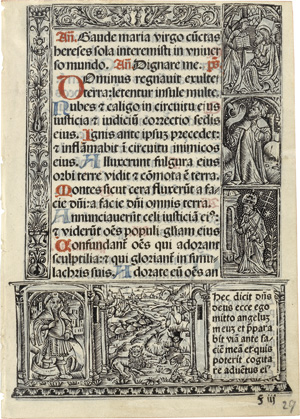 Añ. Gaude maria virgo cūctas
hereses sola interemisti in vniuer
so mundo. Añ. Dignare me. ps
DOminus regnauit exultet
terra: letentur insule multe.
Nubes & caligo in circuitu eius
iusticia & iudiciū correctio sedis
eius. Ignis ante ipsuȝ precedet:
et inflāmabit ī circuitu inimicos
eius. Alluxerunt fulgura eius
orbi terre vidit & cōmota ē terra.
Montes sicut cera fluxerūt a fa
cie dñi: a facie dñi omnis terra.
Annunciauerūt celi iusticiā eiꝰ:
et viderūt oēs populi gliam eius
Confundant̄ oēs qui adorant
sculptilia: & qui gloriant̄ in simu
lachris suis. Adorate eū oēs an
Hec dicit dñs
deus ecce ego
mitto angeluȝ
meuȝ et ꝑpara
bit viā ante fa
ciē meā et quis
poterit cogita
re aduētus eiꝰ
f iij